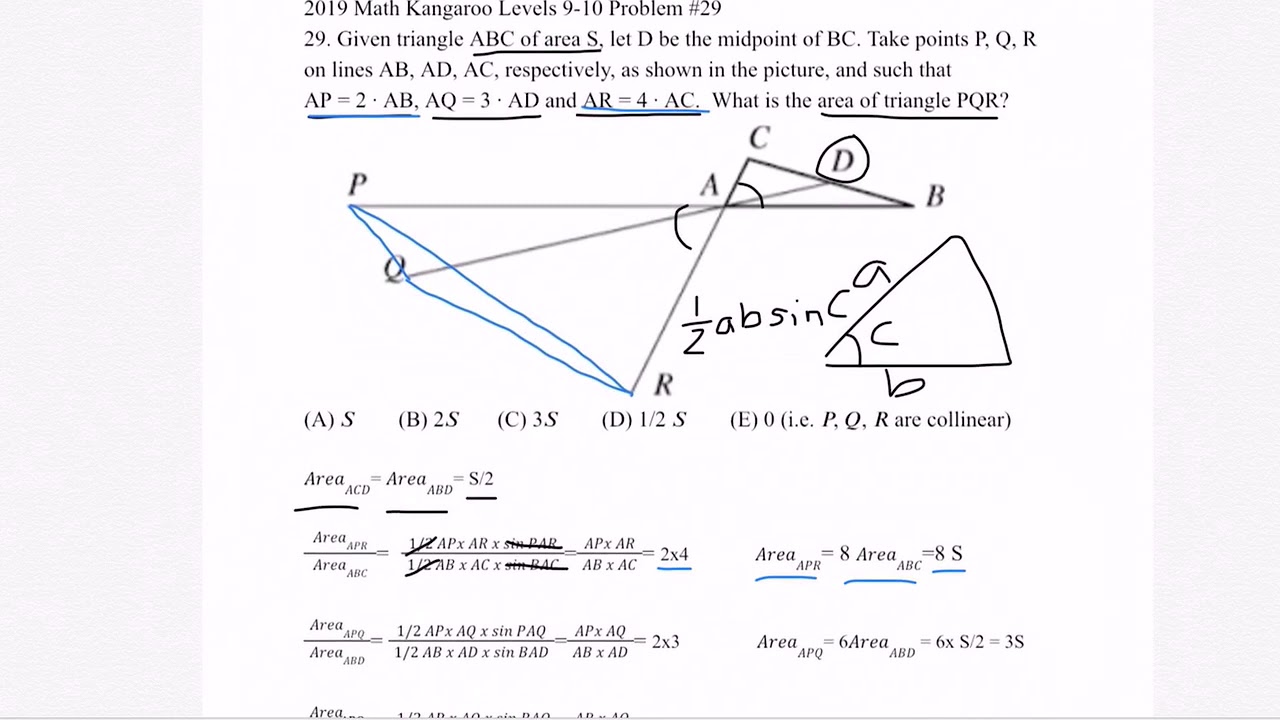 2019 Math Kangaroo Levels 9-10 Problem #29
29. Given triangle ABC of area S, let D be the midpoint of BC. Take points P, Q, R
on lines AB, AD, AC, respectively, as shown in the picture, and such that
AP = 2 · AB, AQ = 3 · AD and AR = 4 · AC. What is the area of triangle PQR?
C
D
P
A
B
Q
a
1/2 ab sin C
C
b
R
(A) S (B) 2S (C) 3S (D) 1/2 S (E) 0 (i.e. P, Q, R are collinear)
Area ACD = Area ABD = S/2
Area APR / Area ABC = 1/2 AP x AR x sin PAR / 1/2 AB x AC x sin BAC = AP x AR / AB x AC = 2x4 Area APR = 8 Area ABC =8 S
Area APQ / Area ABD = 1/2 AP x AQ x sin PAQ / 1/2 AB x AD x sin BAD = AP x AQ / AB x AD = 2x3 Area APQ = 6Area ABD = 6x S/2 = 3S
Area